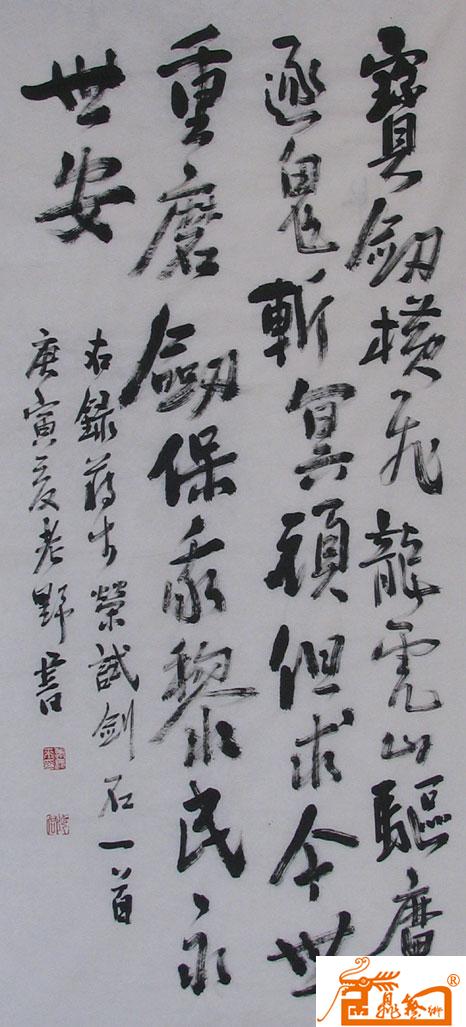 寶劔橫飛龍虎山驅魔
逐鬼斬冥頑但求今世
重磨劔保我黎民永
世安
右錄蔣榮試劍石一首
庚寅夏老野書
鼎藝術®